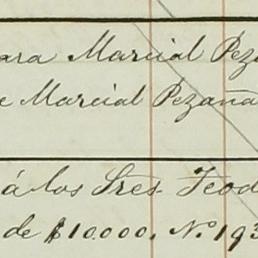 ara Marcial Pez
e Marcial Pezaña
á los Sres. Teod
de $10.000. No. 193